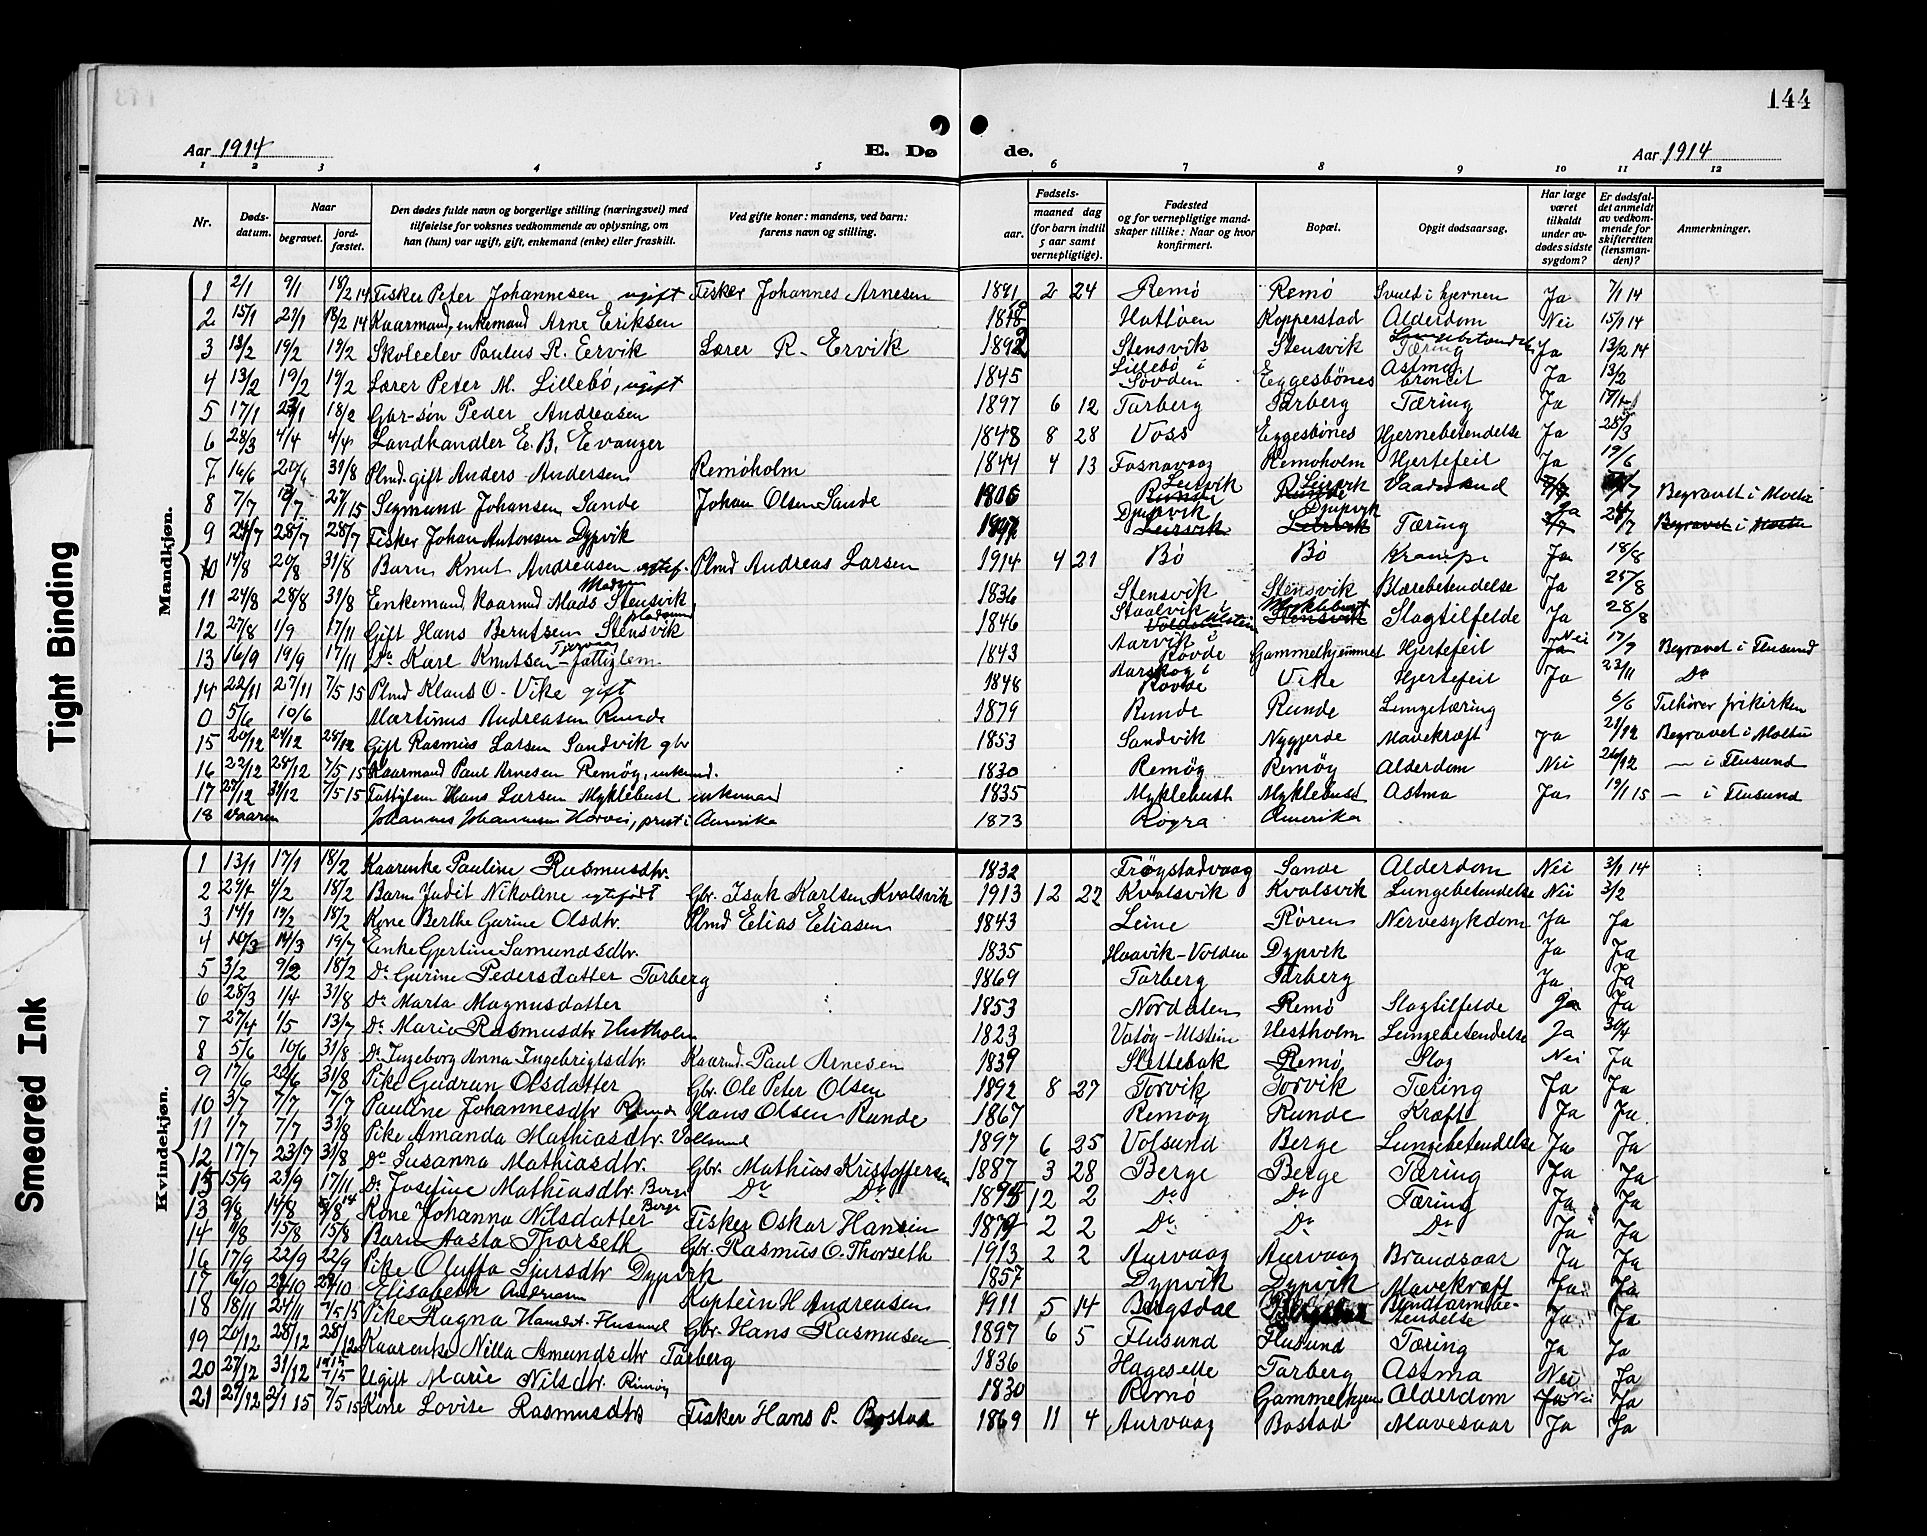 144
Aar 1914 E. Dø de. Aar 1914
1 2 3 4 5 6 7 8 9 10 11 12
Nr. Døds-datum. Naar begravet. jord-fæstet. Den dødes fulde navn og borgerlige stilling (næringsvei) med tilføielse for voksnes vedkommende av oplysning, om han (hun) var ugift, gift, enkemand (enke) eller fraskilt. Ved gifte koner: mandens, ved barn: farens navn og stilling. Fødsels- aar. maaned dag (for barn indtil 5 aar samt vernepligtige). Fødested og for vernepligtige mand-skaper tillike: Naar og hvor konfirmert. Bopæl. Opgit dødsaarsag. Har læge været tilkaldt under av-dødes sidste sygdom? Er dødsfal-det anmeldt av vedkom-mende for skifteretten (lensman-den)? Anmerkninger.
Mandkjøn.
1 2/1 9/1 18/2 14 Fisker Peter Johannesen ugift Fisker Johannes Arnesen 1891 2 24 Remö Remö Svuld i hjernen Ja 7/1 14
2 15/1 21/1 18/2 14 Kaarmand, enkemand Arne Eriksen 1818 Hattöen Kopperstad Alderdom Nei 15/1 14
3 13/2 19/2 19/2 Skoleelev Paulus R. Eervik Lærer R. Ervik 1892 Stensvik Stensvik Tæring Lungebetændelse Ja 13/2 14
4 13/2 19/2 19/2 Lærer Peter M. Lillebö, ugift 1845 Lillebö i Sövden Eggesbönes Astma broncit Ja 13/2
5 17/1 23/1 18/2 Gbr-sön Peder Andreasen 1897 6 12 Tarberg Tarberg Tæring Ja
6 28/3 4/4 4/4 Landhandler E. B. Evanger 1848 8 28 Voss Eggesbönes Hjernebetendelse Ja 28/3
7 16/6 20/6 31/8 Plmd. gift Anders Andersen Remöholm 1844 4 13 Fosnavaag Remöholm Hjertefeil Ja 19/6
8 7/7 13/7 27/1 15 Segmund Johansen Sande Johan Olsen Sande 1806 Runde Leirvik Runde Leirvik Vaadeskud 7/7 Begravet i Moltu
9 24/7 28/7 28/7 Fisker Johan Antonsen Dypvik Djupvik Leirvik Djupvik Leirvik Tæring Ja 28/7 Begravet i Moltu
10 14/8 20/8 31/8 Barn Knut Andreasen egtef. Plmd Andreas Larsen 1914 4 21 Bö Bö Krampe Ja 18/8
11 24/8 28/8 31/8 Enkemand Kaarmd Mads Madsen Stensvik 1836 Stensvik Stensvik Blærebetendelse Ja 25/8
12 27/8 1/9 17/11 Gift Hans Berntsen Stensvik pladsmand 1846 Staalvik i Volden Ulstein Myklebust Stensvik Slagtilfelde Ja 28/8
13 16/9 19/9 17/11 Do Karl Knutsen Tjervaag - fattiglem 1843 Aarvik i Rovde Gammelhjemmet Hjertefeil Ja Nei 17/9 Begravet i Flusund
14 22/11 27/11 7/5 15 Plmd Klaus O. Vike gift 1848 Aarskog i Rovde Vike Hjertefeil Ja 23/11 Do
0 5/6 10/6 Martinus Andreasen Runde 1879 Runde Runde Lungetæring 6/6 Tilhører frikirken
15 20/12 24/12 25/12 Gift Rasmus Larsen Sandvik gbr 1853 Sandvik Nygjerde Mavekræft Ja 21/12 Begravet i Moltu
16 22/12 28/12 7/5 15 Kaarmand Paul Arnesen Remöy, enkemd. 1830 Remöy Remöy Alderdom Nei 26/12 — i Flusund
17 27/12 31/12 7/5 15 Fattiglem Hans Larsen Myklebust enkemand 1835 Myklebust Myklebust Astma Ja 19/1 15 — i Flusund
18 Vaaren Johannes Johannesen Horvei, prest i Amerika 1873 Rogra Amerika
Kvindekjøn.
1 13/1 17/1 18/2 Kaarenke Pauline Rasmusdtr. 1832 Frögstadvaag Sande Alderdom Nei 3/1 14
2 29/1 4/2 18/2 Barn Judit Nikoline egtefödt Gbr. Isak Karlsen Kvalsvik 1913 12 22 Kvalsvik Kvalsvik Lungebetendelse Nei 3/2
3 14/1 19/2 18/2 Kone Berthe Gurine Olsdtr. Plmd Elias Eliasen 1843 Leine Rören Nervesykdom Ja Ja
4 10/3 14/3 19/7 Enke Gjertine Samundsdtr. 1835 Haavik-Volden Dypvik Ja Ja
5 3/2 9/2 18/2 Do Gurine Pedersdatter Tarberg 1869 Tarberg Tarberg Ja Ja
6 28/3 1/4 31/8 Do Marta Magnusdatter 1853 Nordalen Remö Slagtilfelde Ja Ja
7 27/4 1/5 13/7 Do Marie Rasmusdtr Hestholm 1823 Vatöy-Ulstein Hestholm Lungebetendelse Ja 30/4
8 5/6 10/6 31/8 Do Ingeborg Anna Ingebrigtsdtr. Kaarmd. Paul Arnesen 1839 Slettebak Remö Slag Nei Ja
9 17/6 22/6 31/8 Pike Gudrun Olsdatter Gbr. Ole Peter Olsen 1892 8 27 Torvik Torvik Tæring Ja Ja
10 3/7 7/7 17/7 Pauline Johannesdtr Runde Hans Olsen Runde 1867 Remöy Runde Kræft Ja Ja
11 1/7 7/7 31/8 Pike Amanda Mathiasdtr. Volsund 1897 6 25 Volsund Berge Lungebetendelse Ja Ja
12 17/7 23/7 31/8 Do Susanna Mathiasdtr. Gbr. Mathias Kristoffersen 1887 3 28 Berge Berge Tæring Ja Ja
15 15/9 21/9 17/11 Do Josefine Mathiasdtr. Berge Do Do 1895 12 2 Do Do Tæring Ja Ja
13 9/8 14/8 Kone Johanna Nilsdatter Berge Fisker Oskar Hansen 1879 2 2 Do Do Do Ja Ja
14 11/8 15/8 15/8 Barn Aasta Thorseth Gbr. Rasmus O. Thorseth 1913 2 2 Aurvaag Aurvaag Brandsaar Ja Ja
16 17/9 22/9 22/9 Pike Oluffa Sjursdtr Dypvik 1857 Dypvik Dypvik Mavekræft Ja Ja
17 16/10 24/10 24/10 Elisabeth Andreasen Kaptein H Andreasen 1911 5 14 Bergsdal Blindtarmbe-tendelse Ja Ja
18 18/11 24/11 7/5 15 Pike Ragna Flusund Gbr. Hans Rasmusen 1897 6 5 Flusund Flusund Tæring Ja Ja
19 20/12 28/12 28/12 Kaarenke Nilla Amundsdtr Tarberg 1836 Hageselle Tarberg Astma Nei Ja
20 27/12 31/12 7/5 Ugift Marie Nilsdtr. Remöy 1830 Remö Gammelhjem Alderdom Ja Nei Ja
21 27/12 2/1 15 7/5 15 Kone Lovise Rasmusdtr Fisker Hans P. Bostad 1869 11 4 Aurvaag Bostad Mavesaar Ja Ja
Tight Binding
Smeared Ink